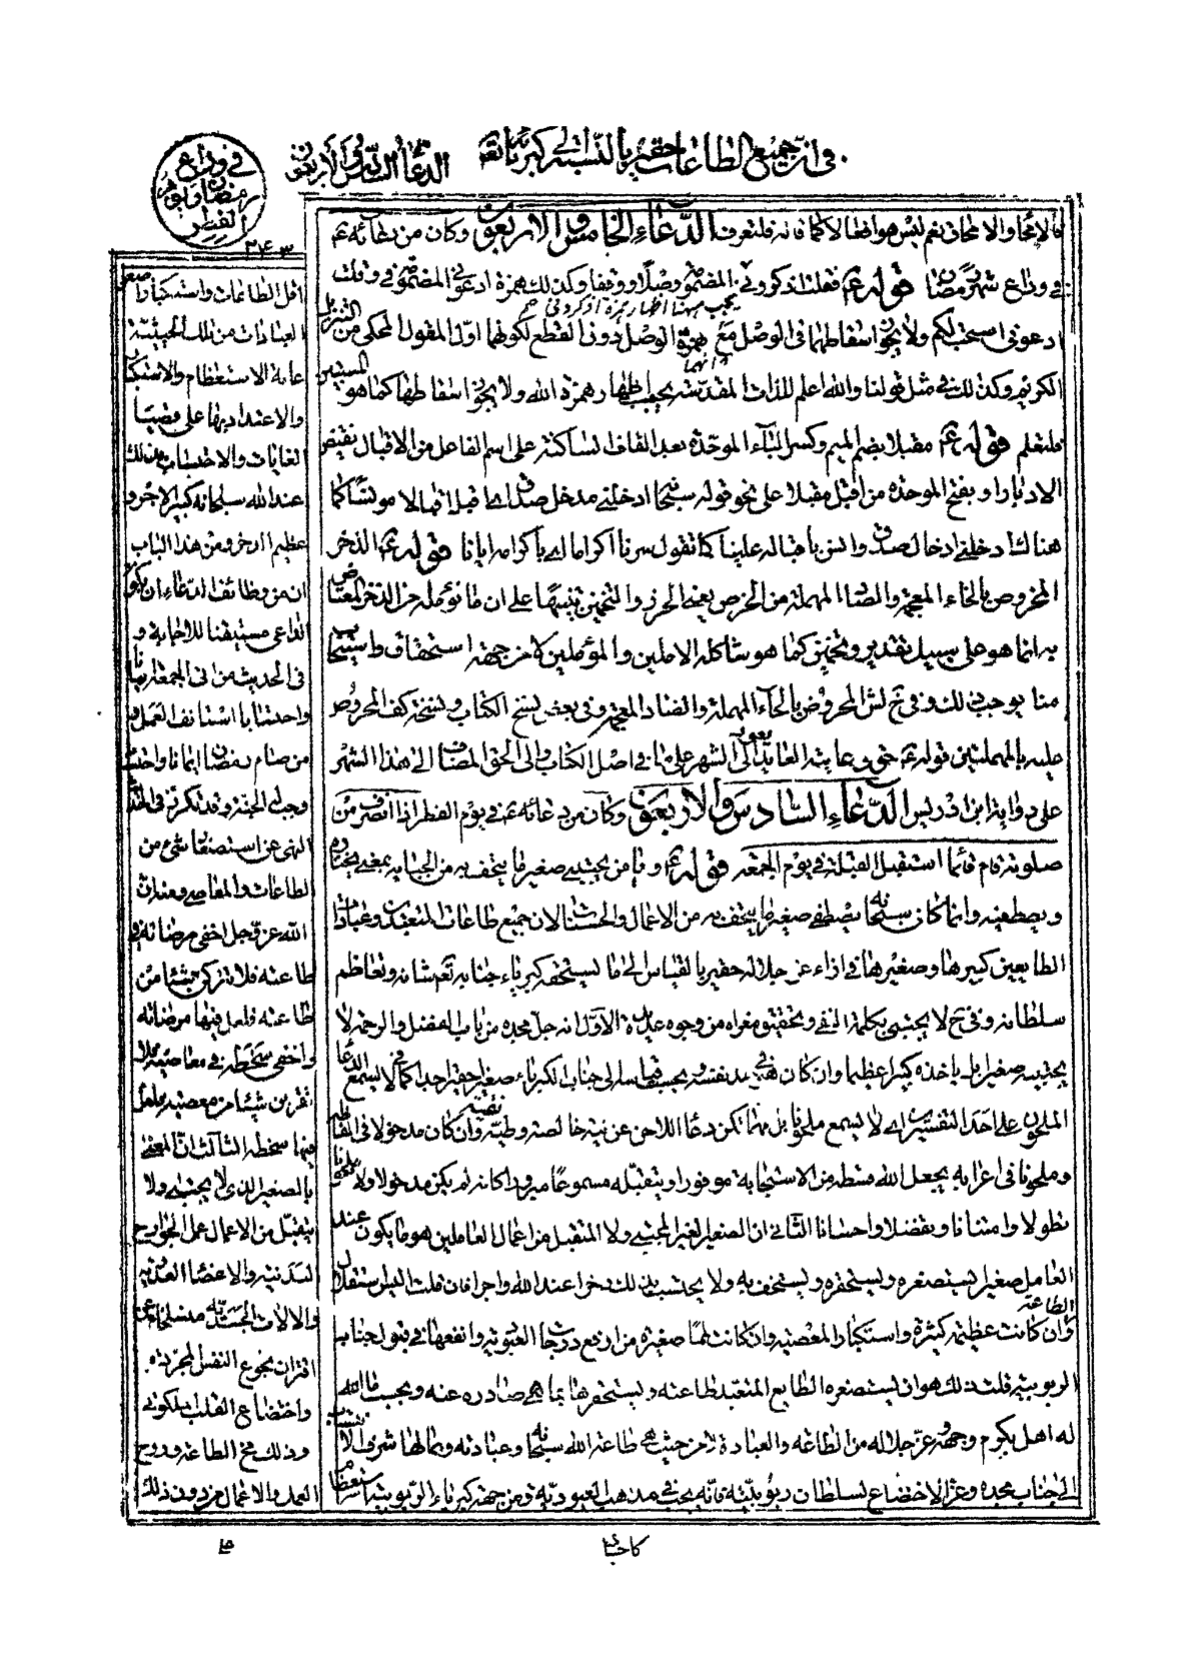 في ان جميع الطاعات حقير بالنسبة الى كبريائه تعالى
الدعاء السادس والاربعون
في وداع
رمضان ويوم
الفطر
٢٤٣
الدعاء الخامس والاربعون وكان من دعائه ع
في وداع شهر رمضان قوله ع فقلت اذكروني المضمومة وصلا ووقفا وكذلك همزة ادعوني المضمومة في وقلت
يجب ههنا اظهار همزة اذكروني
ادعوني استجب لكم ولا يجوز اسقاطهما في الوصل مع همزة الوصل دون القطع لكونهما اول المقول المحكي من التنزيل
الكريم وكذلك في مثل قولنا والله اعلم للذات المقدسة يجب اظهار همزة الله ولا يجوز اسقاطها كما هو المستبين
فليعلم قوله ع مقبلا بضم الميم وكسر الباء الموحدة بعد القاف الساكنة على اسم الفاعل من الاقبال نقيض
الادبار او بفتح الموحدة من اقبل مقبلا على نحو قوله سبحانه ادخلني مدخل صدق اي قبل اقبالا مونسا كما
هنالك ادخلني ادخال صدق وانس باقباله علينا كما تقول سرنا اكراما اي باكرامه ايانا قوله ع الذخر
المخروص بالخاء المعجمة والصاد المهملة من الخرص بمعنى الحرز والتخمين تنبيها على ان ما نؤمله من الذخر المعتاض
به انما هو على سبيل تقدير وتخمين كما هو شاكلة الاملين والمؤملين لا من جهة استحقاق واستيجاب
منا يوجب ذلك وفي خ لش المحروض بالحاء المهملة والضاد المعجمة وفي بعض نسخ الكتاب ونسخة كف المحروص
عليه بالمهملتين قوله ع حق رعايته العائد يعود الى الشهر على ما في اصل الكتاب والى الحق المضاف الى هذا الشهر
على رواية ابن ادريس الدعاء السادس والاربعون وكان من دعائه ع في يوم الفطر اذا انصرف من
صلوته قام قائما استقبل القبلة في يوم الجمعة قوله ع ويا من يجتبي صغير ما يتحف به من الجباية بمعنى يختاره
ويصطفيه وانما كان سبحانه يصطفي صغير ما يتحف به من الاعمال والحسنات لان جميع طاعات المتعبدين وعبادات
الطايعين كبيرها وصغيرها في ازاء عز جلاله حقير بالقياس الى ما يستحقه كبرياء جنابه تعم شانه وتعاظم
سلطانه وفي خ لا يجتبي بكلمة النفي وتحقيق مغزاه من وجوه عديدة الاول انه جل مجده من باب الفضل والرحمة لا
يجتبيه صغيرا بل ياخذه كبيرا عظيما وان كان هو في حد نفسه وبحسب قياسه الى جناب الكبرياء صغيرا حقيرا جدا كما في لا يسمع الدعاء
الملحون على احد التفسيرين اي لا يسمع ملحونا بل مهما تكن دعاء اللاحن عن نية خالصة وطية نقية وان كان مدخولا في الفاظه
وملحونا في اعرابه يجعل الله قسطه من الاستجابة موفورا ويتقبله مسموعا مبرورا كانه لم يكن مدخولا ولا ملحونا
تطولا وامتنانا وتفضلا واحسانا الثاني ان الصغير الغير المجتبى ولا المتقبل من اعمال العاملين هو ما يكون عند
العامل صغيرا يستصغره ويستحقره ويستخف به ولا يحتسب بذلك ذخرا عند الله واجرا فان قلت اليس استقلال الطاعة
وان كانت عظيمة كثيرة واستكبار المعصية وان كانت لمما صغيرة من ارفع درجات العبودية وانفعها في قبول جناب
الربوبية قلت ذلك هو ان يستصغره الطايع المتعبد طاعته ويستحقرها بما هي صادرة عنه وبحسب ما الله
له اهل بكرم وجهه وعز جلاله من الطاعة والعبادة لا من حيث هي طاعة الله سبحانه وعبادته وبما لها شرف الانتساب
الى جناب مجده وعز الاختضاع لسلطان ربوبيته فانه يجب في مذهب العبودية ومن جهة كبرياء الربوبية استعظام
كاحسان
اقل الطاعات واستكبار اصغر
العبادات من تلك الحيثية
غاية الاستعظام والاستكبار
والاعتداد بها على قصيا
الغايات والاحتساب بذلك
عند الله سبحانه كبير الاجر و
عظيم الذخر ومن هذا الباب
ان من وظائف الدعاء ان يكون
الداعي مستيقنا للاجابة و
في الحديث من اتى الجمعة ايمانا
واحتسابا استانف العمل و
من صام رمضان ايمانا واحتسابا
وجبت الجنة وقد تكرر في الحديث
النهي عن استصغار شيء من
الطاعات والمعاصي وعنه ان
الله عز وجل اخفى مرضاته في
طاعته فلا تتركن شيئا من
طاعته فلعل فيها مرضاته
واخفى سخطه في معاصيه فلا
تقربن شيئا من معصيته فلعل
فيها سخطه الثالث ان المعنى
بالصغير الذي لا يجتبى ولا
يتقبل من الاعمال عمل الجوارح
البدنية والاعضاء العدنية
والالات الجسدية منسلخا عن
اقتران بخوع النفس المجردة
واختضاع القلب الملكوتي
وذلك مخ الطاعة وروح
العمل والاعمال من دون ذلك